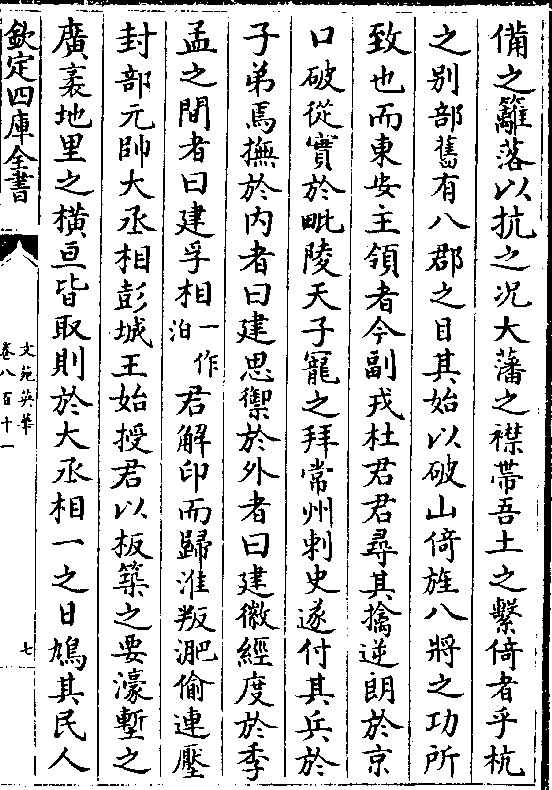 備之籬落以抗之况大藩之襟帶吾土之繫倚者乎杭
之别部舊有八郡之目其始以破山倚旌八將之功所
致也而東安主領者今副戎杜君君尋其擒逆朗於京
口破從實於毗陵天子寵之拜常州刺史遂付其兵於
子弟焉撫於内者曰建思禦於外者曰建徽經度於季
孟之間者曰建孚相一作洎君解印而歸淮叛淝偷連壓
封部元帥大丞相彭城王始授君以板築之要濠塹之
廣袤地里之横亘皆取則於大丞相一之日鳩其民人
欽定四庫全書
文苑英華
卷八百十一
七